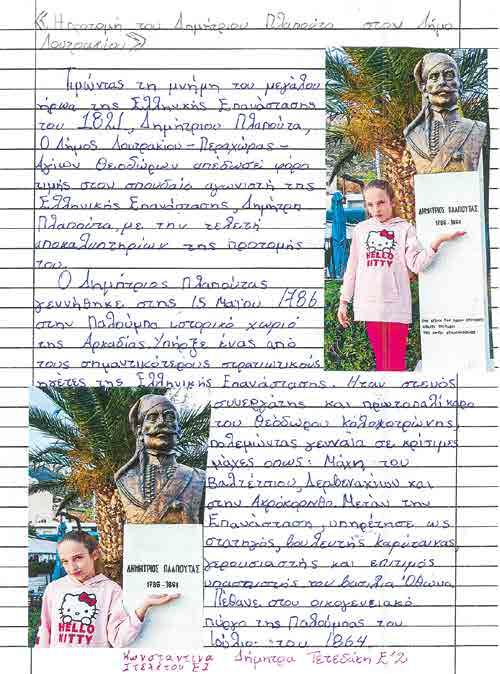 «Η προτομή του Δημήτριου Πλαπούτα στον Δήμο
Λουτρακίου»
Τιμώντας τη μνήμη του μεγάλου
ήρωα της Ελληνικής Επανάστασης
του 1821, Δημήτριου Πλαπούτα,
Ο Δήμος Λουτρακίου-Περαχώρας-
Αγίων Θεοδώρων απέδωσε φόρο
τιμής στον σπουδαίο αγωνιστή της
Ελληνικής Επανάστασης, Δημήτρη
Πλαπούτα, με την τελετή
αποκαλυπτηρίων της προτομής
του.
Ο Δημήτριος Πλαπούτας
γεννήθηκε στις 15 Μαΐου 1786
στην Παλούμπα ιστορικό χωριό
της Αρκαδίας. Υπήρξε ένας από
τους σημαντικότερους στρατιωτικούς
ηγέτες της Ελληνικής Επανάστασης. Ήταν στενός
συνεργάτης και πρωτοπαλίκαρο
του Θεόδωρου Κολοκοτρώνης,
πολεμώντας γενναία σε κρίσιμες
μάχες όπως: Μάχη του
Βαλτετσίου, Δερβενακίων και
στην Ακροκόρινθο. Μετάν την
Επανάσταση, υπηρέτησε ως
στρατηγός, βουλευτής Καρύταινας,
γερουσιαστής και επίτιμος
υπασπιστής του βασιλιά Όθωνα.
Πέθανε στου οικογενειακό
πύργο της Παλούμπας του
Ιούλιο του 1864
Κωνσταντίνα Δήμητρα Τετεδάκη Ε'2
Στελέτου Ε2
ΔΗΜΗΤΡΙΟΣ ΠΛΑΠΟΥΤΑΣ
1786 - 1864
HELLO
KITTY
ΔΗΜΗΤΡΙΟΣ ΠΛΑΠΟΥΤΑΣ
1786 - 1864
HELLO
KITTY